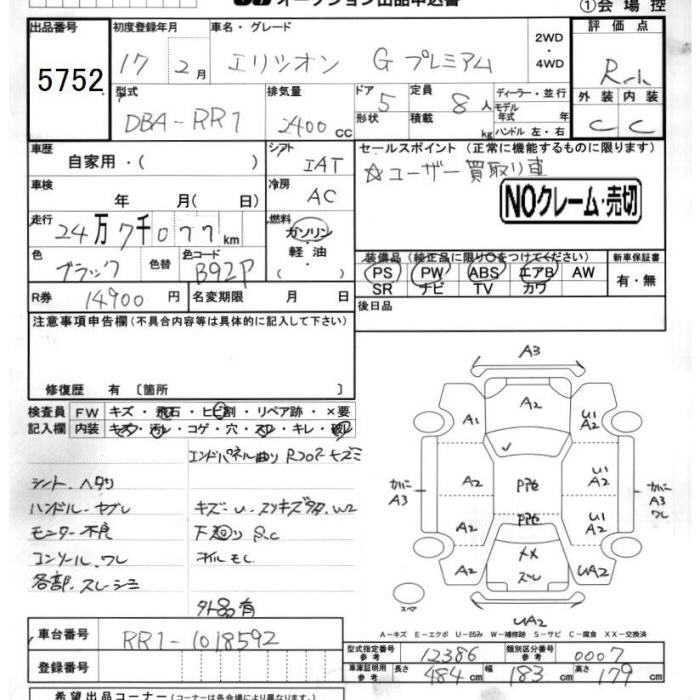 オークション出品申込書
①会場控
出品番号 5752
初度登録年月 17 2月
車名・グレード エリシオン Gプレミアム 2WD・4WD
評価点
型式 DBA-RR1
排気量 2400 CC
ドア 5 形状
定員 8人 積載 kg
ディーラー・並行
モデル年式 年式
ハンドル 左・右
外装 C 内装 C
車歴 自家用・( )
シフト IAT
セールスポイント (正常に機能するものに限ります)
☆ユーザー買取り車
NOクレーム・売切
車検 年 月( 日)
冷房 AC
走行 24万7千077km
燃料 ガソリン・軽油・( )
色 ブラック 色替 色コード B92P
装備品(純正品に限り○をつけてください) 新車保証書
PS PW ABS エアB AW 有・無
SR ナビ TV カワ
R券 14900円 名変期限 月 日
後日品
注意事項申告欄(不具合内容等は具体的に記入して下さい)
修復歴 有 〔箇所 〕
検査員記入欄 FW キズ・飛石・ヒビ割・リペア跡・×要
内装 キズ・汚れ・コゲ・穴・スレ・キレ・破れ
エンドパネル曲り Rフロアキズミ
シート.ヘタリ
ハンドル.ヤブレ
キズ U. スリキズ多. W2
モニター不良
下回り S.C
コンソール.ワレ
オイルモレ
各部.スレシミ
外品有
A3
A2
A1
U1 A2
カバー A3
A2
PPセ
U1 A2
カバー A3 ワレ
A2
PPセ
U1 A2
A2
××
ズレ
UA2
スペア
UA2
A-キズ E-エクボ U-凹み W-補修跡 S-サビ C-腐食 XX-交換済
車台番号 RR1-1018592
型式指定番号 参考 12386 類別区分番号 参考 0007
登録番号
車庫証明用 参考 長さ 484cm 幅 183cm 高さ 179cm
希望出品コーナー(コーナーは各会場により異なります。)